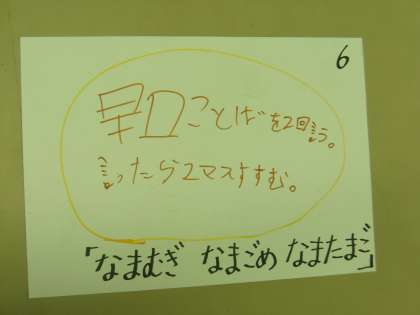 6
早口ことばを2回言う。
言ったら2マスすすむ。
「なまむぎ なまごめ なまたまご」